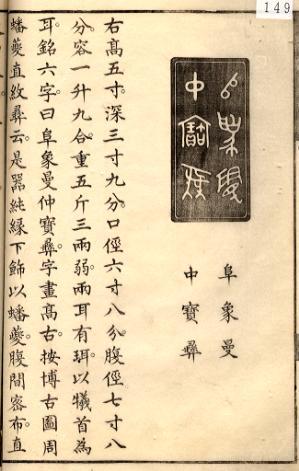 149
阜象曼
中寶彞
右高五寸深三寸九分口徑六寸八分腹徑七寸八
分容一升九合重五斤三兩弱兩耳有珥以犧首為
耳銘六字曰阜象曼仲寶彞字畫高古按博古圖周
蟠夔直紋彞云是器純緣下飾以蟠夔腹間密布直